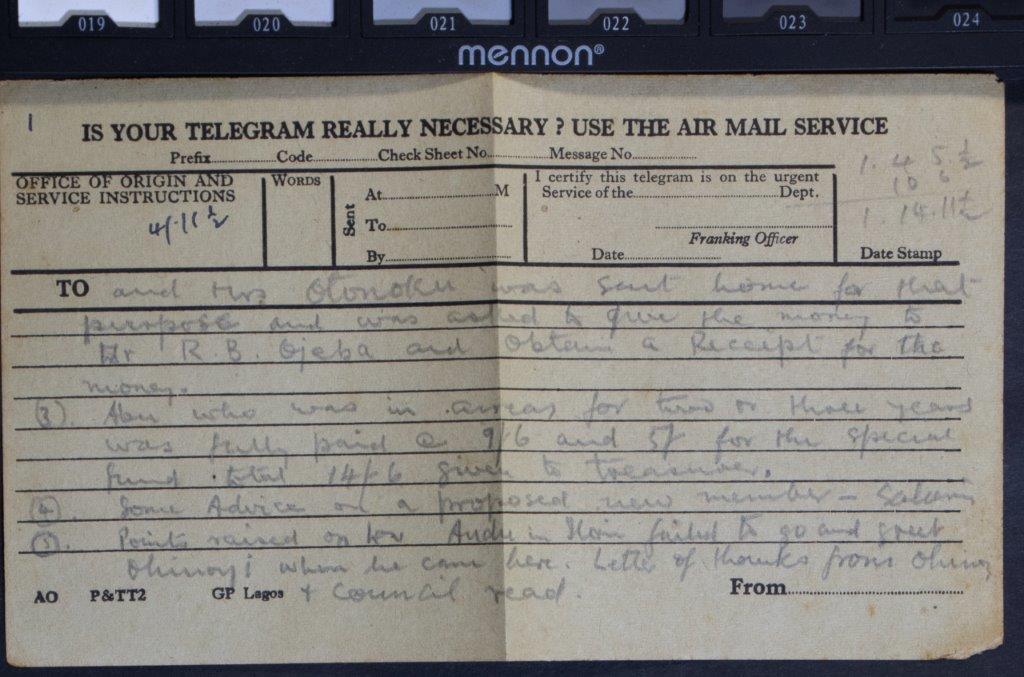 019 020 021 022 023 024
mennon®
1
IS YOUR TELEGRAM REALLY NECESSARY ? USE THE AIR MAIL SERVICE
Prefix Code Check Sheet No. Message No.
OFFICE OF ORIGIN AND
SERVICE INSTRUCTIONS
4/-11½
WORDS
Sent
At M
To
By
I certify this telegram is on the urgent
Service of the Dept.
Franking Officer
Date
1. 4 5.½
10 6
1. 14.11½
Date Stamp
TO and Mrs Otonoku was sent home for that
purpose and was asked to give the money to
Mr R B. Ojeba and obtain a Receipt for the
money.
(3). Abu who was in arreas for two or three years
was fully paid @ 9/6 and 5/ for the special
fund total 14/-6 given to treasurer.
(4). Some Advice on a proposed new member - Salami
(5). Points raised on how Audu in Ilorin failed to go and greet
Ohinoyi when he came here. Letter of thanks from Ohinoy
+ Council read.
From
AO P&TT2 GP Lagos